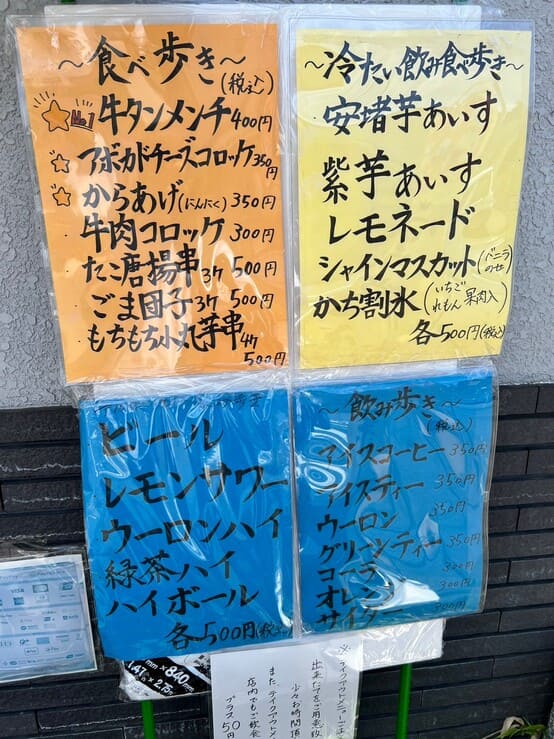 ～食べ歩き～
(税込)
No.1 牛タンメンチ 400円
アボカドチーズコロッケ 350円
からあげ(にんにく) 350円
牛肉コロッケ 300円
たこ唐揚串 3ケ 500円
ごま団子 3ケ 500円
もちもち小丸芋串 4ケ
500円
～冷たい飲み食べ歩き～
安堵芋あいす
紫芋あいす
レモネード
シャインマスカット(バニラのせ)
かち割氷(いちご れもん 果肉入)
各500円(税込)
ビール
レモンサワー
ウーロンハイ
緑茶ハイ
ハイボール
各500円(税込)
～飲み歩き～
(税込)
アイスコーヒー 350円
アイスティー 350円
ウーロン 350円
グリーンティー 350円
コーラ 300円
オレンジ 300円
サイダー
VISA
mm×840mm
1.47 2.75
※テイクアウトメニューご注
出来たてをご用意致
少々お時間頂
また、テイクアウトメ
店内でもご飲食
プラス50